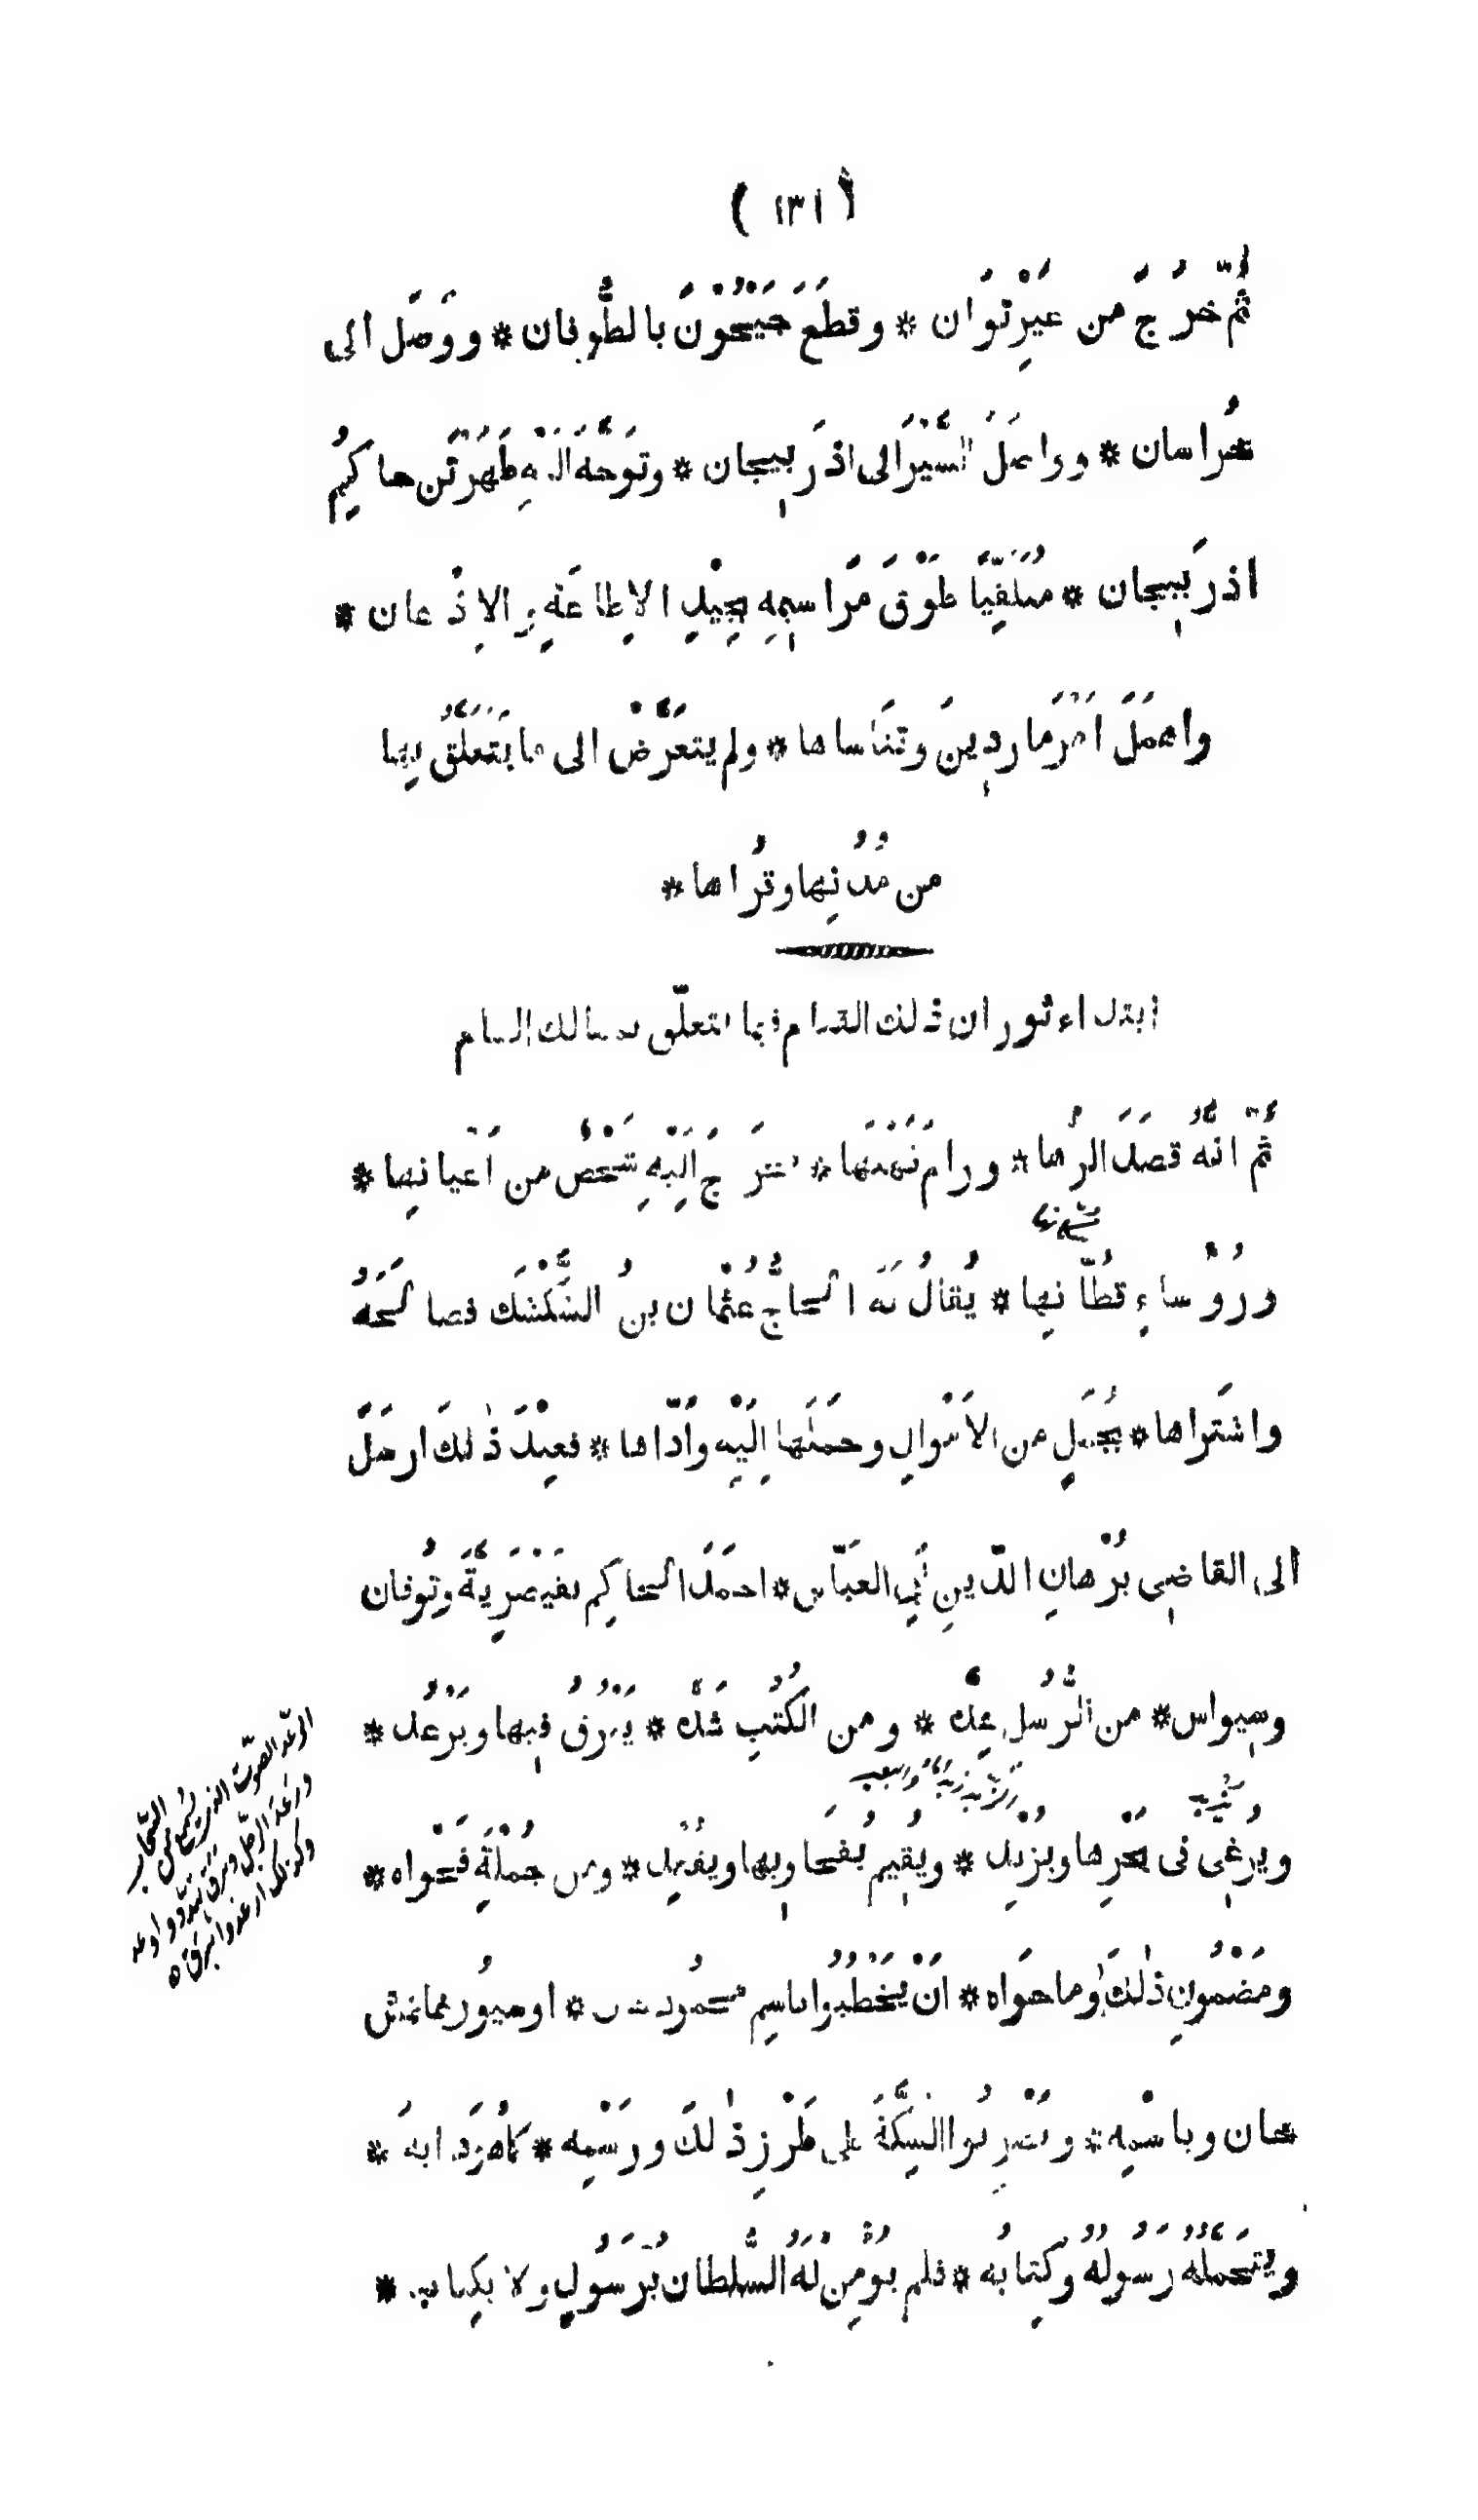 ( ١٣١ )
ثُمَّ خَرَجَ من غَيْرِ تَوَان * وقطَعَ جَيْحُوْنَ بالطُّوفان * ووَصَلَ الى
خُراسان * وواصَلَ السَّيْرَ الى اذرَبيجان * وتوَجَّهَ اليْهِ طَهَرْتَن حاكِمُ
اذرَبيجان * مُتَلَقِّيًا طَوْقَ مَراسيمِه بجِيْدِ الاِطاعَةِ والاِذْعان *
واهمَلَ امْرَ مارِدينَ وتَنَاساها * ولم يتعَرَّضْ الى ما يَتَعَلَّقُ بِها
من مُدُنِها وقُراها *
ابتداء ثوران ذلك القتام فيما يتعلّق بممالك الشام
ثُمَّ انَّهُ قصَدَ الرُها * ورامَ نَهْبَها * فخَرَجَ اِلَيْهِ شَخْصٌ من اَعْيانِها *
ورُوْساءِ قُطّانِها * يُقالُ لَه الحاجُّ عُثْمان بنُ الشَّكْشَك فصالَحَهُ
واشتَراها * بجُمَلٍ من الاَمْوالِ وحمَلَها اِلَيْهِ وَاَدّاها * فعِنْدَ ذٰلكَ ارسَلَ
الى القاضى بُرْهانِ الدّينِ اَبى العَبّاس * احمَدَ الحاكِم بقَيْصَرِيَّةَ وتُوقان
وسيواس * من الرُّسُلِ عِدَّه * ومن الكُتُبِ شَدَّه * يَبْرُقُ فيها ويَرْعُد *
ويُرْغى فى بَحْرِها ويُزْبِد * ويُقيم بُفَحاويها ويُقْعِد * ومن جُمْلَةِ فَحْواه *
ومَضْمُونِ ذٰلكَ وما حَواه * اَنْ يَخْطُبُوا باسمِ محمُود خان * اوسيُورغماتمش
خان وباسْمِه * ويَضْرِبُوا السِّكَّةَ على طَرْزِ ذٰلكَ ورَسْمِه * كما هو دَابُه *
ويَتَحَمَّلُهُ رَسُولُهُ وكِتابُه * فلم يُؤْمِنْ لَهُ السُّلطانُ بُرَسُولٍ ولا بكِتاب *
الرعد الصوت الذى يُسمع من السحاب